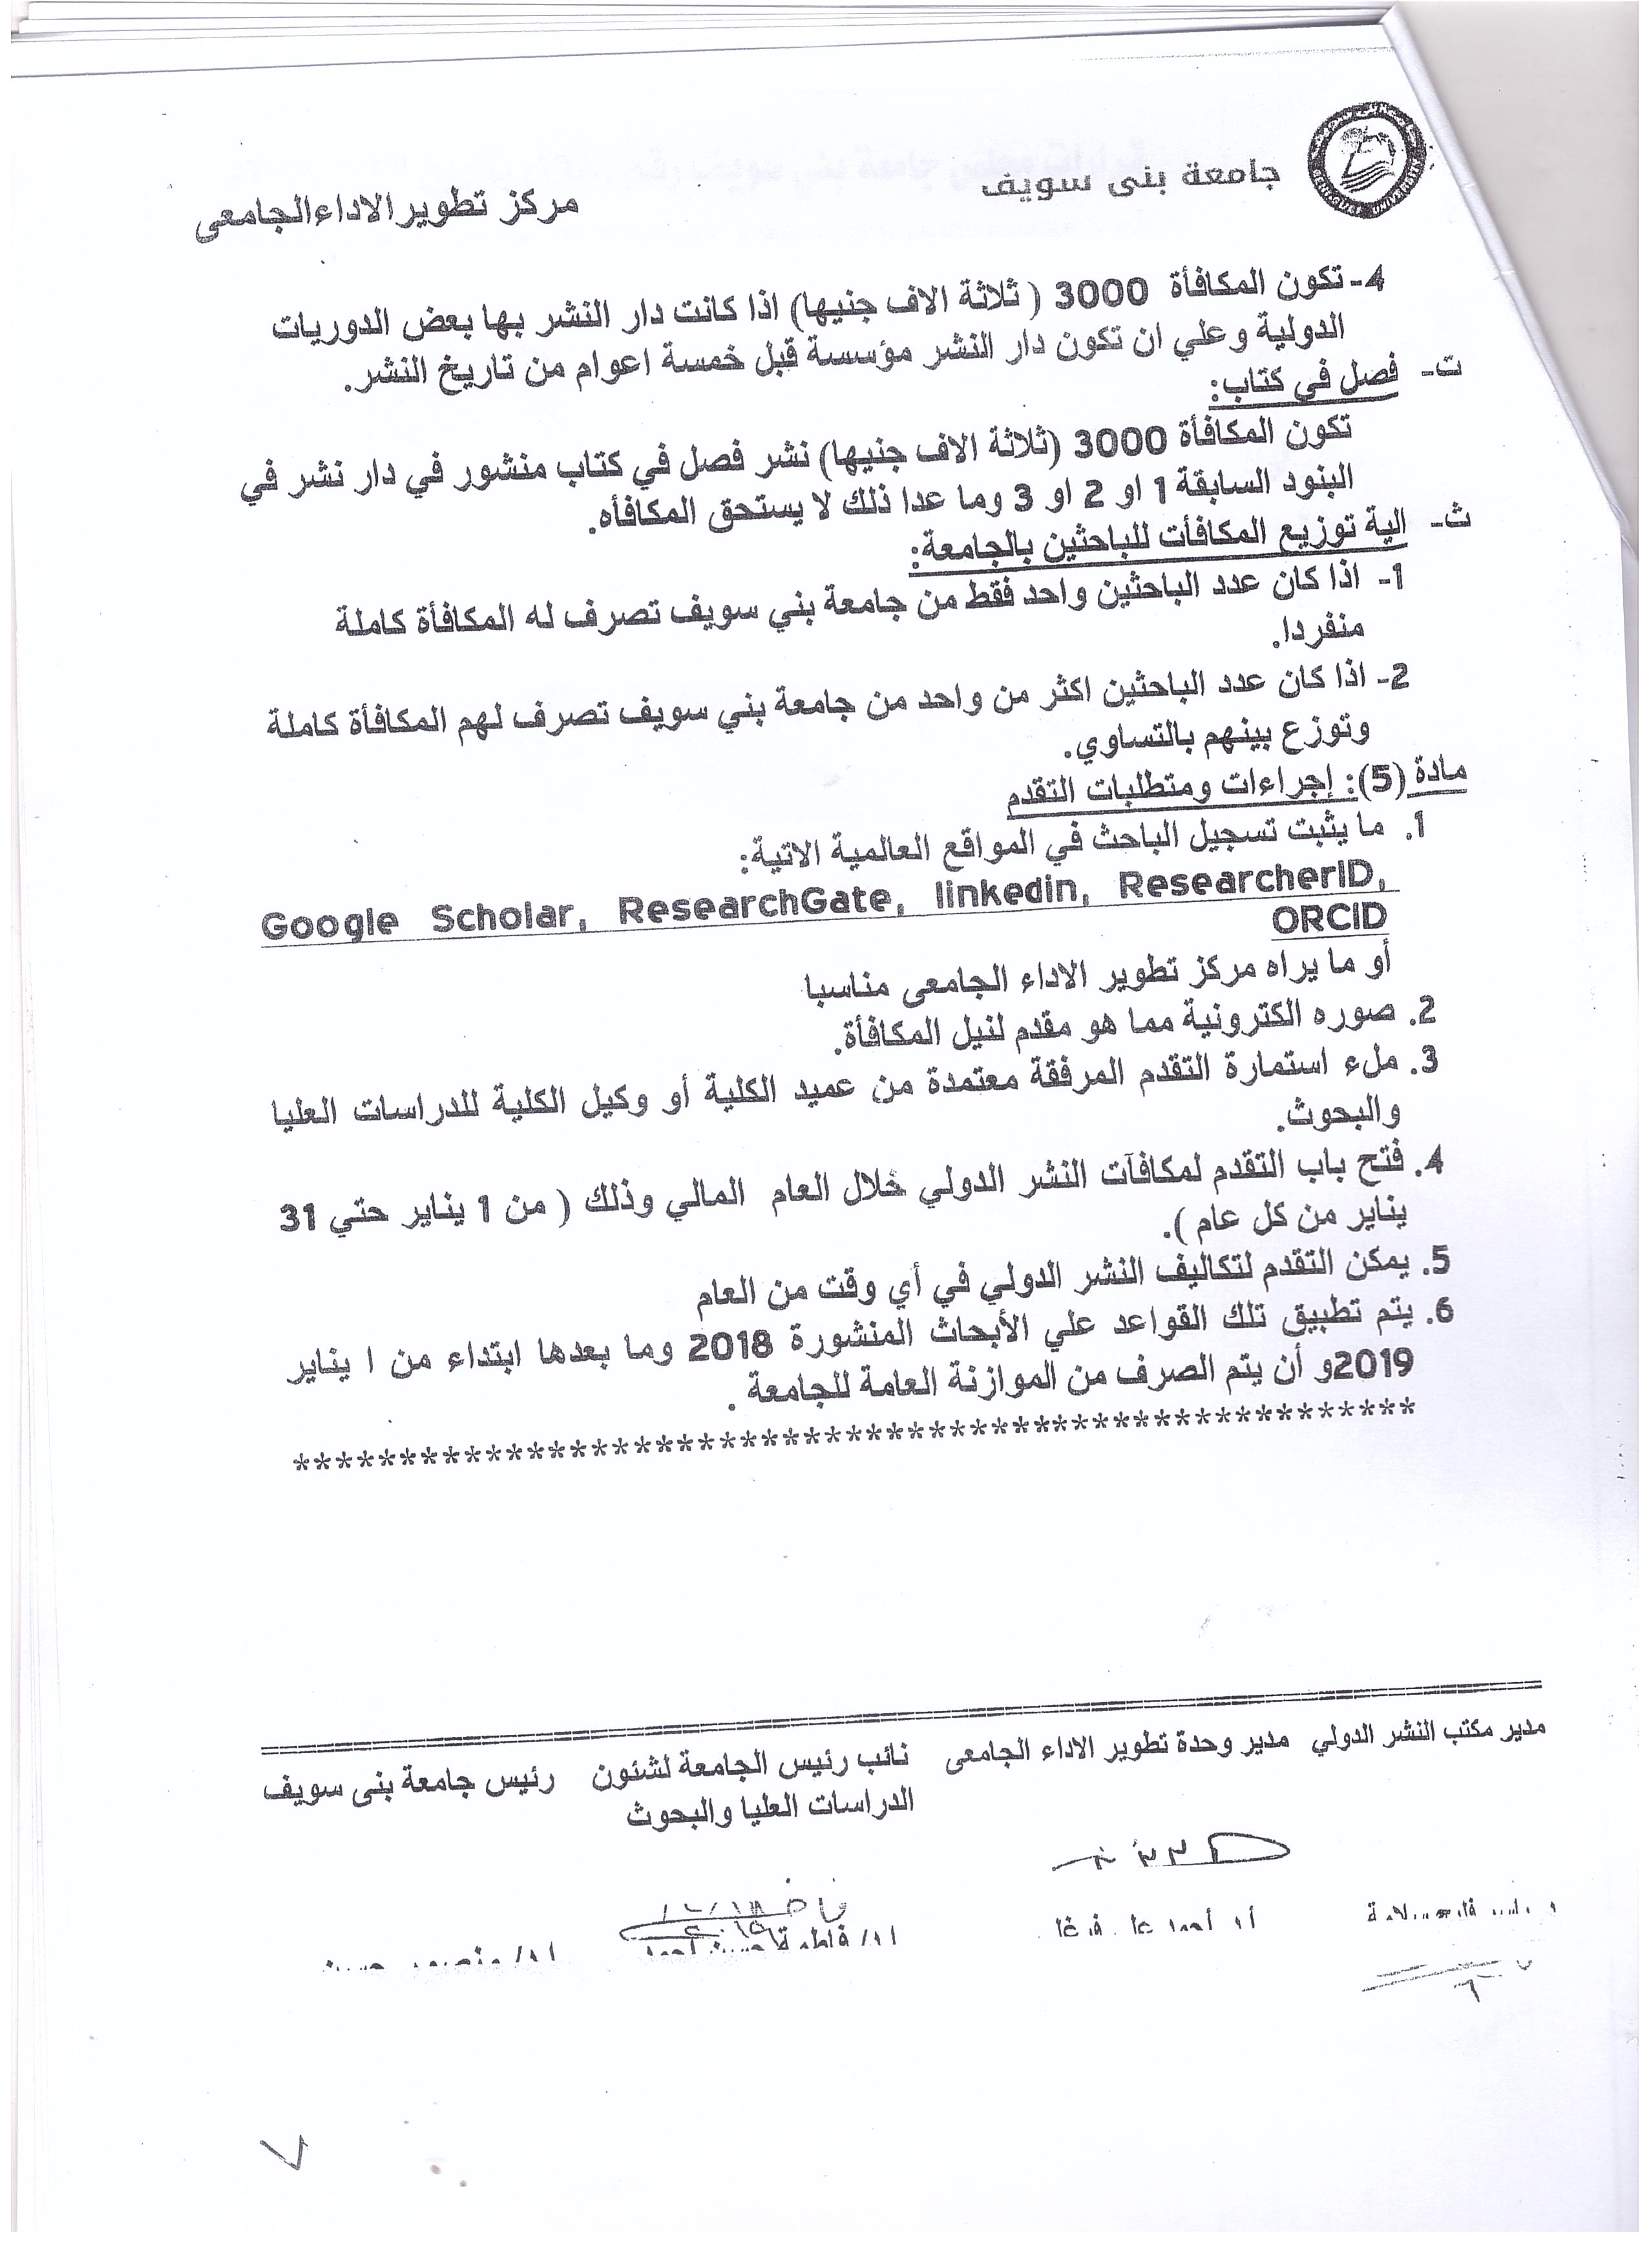 جامعة بنى سويف
مركز تطوير الاداء الجامعى
4- تكون المكافأة 3000 ( ثلاثة الاف جنيها) اذا كانت دار النشر بها بعض الدوريات
الدولية وعلي ان تكون دار النشر مؤسسة قبل خمسة اعوام من تاريخ النشر.
ت- فصل في كتاب:
تكون المكافأة 3000 (ثلاثة الاف جنيها) نشر فصل في كتاب منشور في دار نشر في
البنود السابقة 1 او 2 او 3 وما عدا ذلك لا يستحق المكافأه.
ث- الية توزيع المكافأت للباحثين بالجامعة:
1- اذا كان عدد الباحثين واحد فقط من جامعة بني سويف تصرف له المكافأة كاملة
منفردا.
2- اذا كان عدد الباحثين اكثر من واحد من جامعة بني سويف تصرف لهم المكافأة كاملة
وتوزع بينهم بالتساوي.
مادة (5): إجراءات ومتطلبات التقدم
1. ما يثبت تسجيل الباحث في المواقع العالمية الاتية:
Google Scholar, ResearchGate, linkedin, ResearcherID,
ORCID
أو ما يراه مركز تطوير الاداء الجامعى مناسبا
2. صوره الكترونية مما هو مقدم لنيل المكافأة.
3. ملء استمارة التقدم المرفقة معتمدة من عميد الكلية أو وكيل الكلية للدراسات العليا
والبحوث.
4. فتح باب التقدم لمكافآت النشر الدولي خلال العام المالي وذلك ( من 1 يناير حتي 31
يناير من كل عام ).
5. يمكن التقدم لتكاليف النشر الدولي في أي وقت من العام
6. يتم تطبيق تلك القواعد علي الأبحاث المنشورة 2018 وما بعدها ابتداء من ا يناير
2019و أن يتم الصرف من الموازنة العامة للجامعة .
*****************************************************
مدير مكتب النشر الدولي مدير وحدة تطوير الاداء الجامعى نائب رئيس الجامعة لشئون رئيس جامعة بنى سويف
الدراسات العليا والبحوث
ا.د/ فاطمة حسين أحمد
ا.د/ منصور حسن
٧